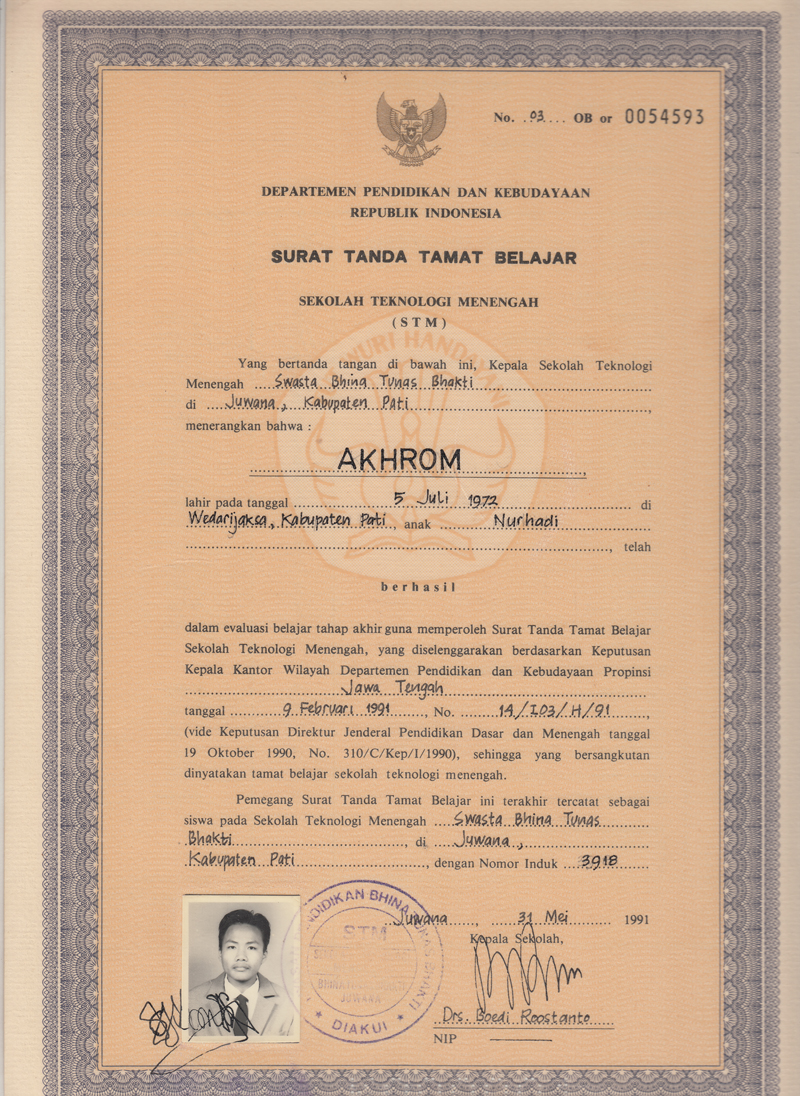 No. .03.... OB or 0054593
DEPARTEMEN PENDIDIKAN DAN KEBUDAYAAN
REPUBLIK INDONESIA
SURAT TANDA TAMAT BELAJAR
SEKOLAH TEKNOLOGI MENENGAH
( S T M )
Yang bertanda tangan di bawah ini, Kepala Sekolah Teknologi
Menengah Swasta Bhina Tunas Bhakti
di Juwana, Kabupaten Pati,
menerangkan bahwa :
AKHROM,
lahir pada tanggal 5 Juli 1972 di
Wedarijaksa, Kabupaten Pati, anak Nurhadi
, telah
berhasil
dalam evaluasi belajar tahap akhir guna memperoleh Surat Tanda Tamat Belajar
Sekolah Teknologi Menengah, yang diselenggarakan berdasarkan Keputusan
Kepala Kantor Wilayah Departemen Pendidikan dan Kebudayaan Propinsi
Jawa Tengah
tanggal 9 Februari 1991, No. 14/I03/H/91,
(vide Keputusan Direktur Jenderal Pendidikan Dasar dan Menengah tanggal
19 Oktober 1990, No. 310/C/Kep/I/1990), sehingga yang bersangkutan
dinyatakan tamat belajar sekolah teknologi menengah.
Pemegang Surat Tanda Tamat Belajar ini terakhir tercatat sebagai
siswa pada Sekolah Teknologi Menengah Swasta Bhina Tunas
Bhakti, di Juwana,
Kabupaten Pati, dengan Nomor Induk 3918
Juwana, 31 Mei 1991
Kepala Sekolah,
Drs. Boedi Roostanto
NIP
STM
JUWANA
DIAKUI